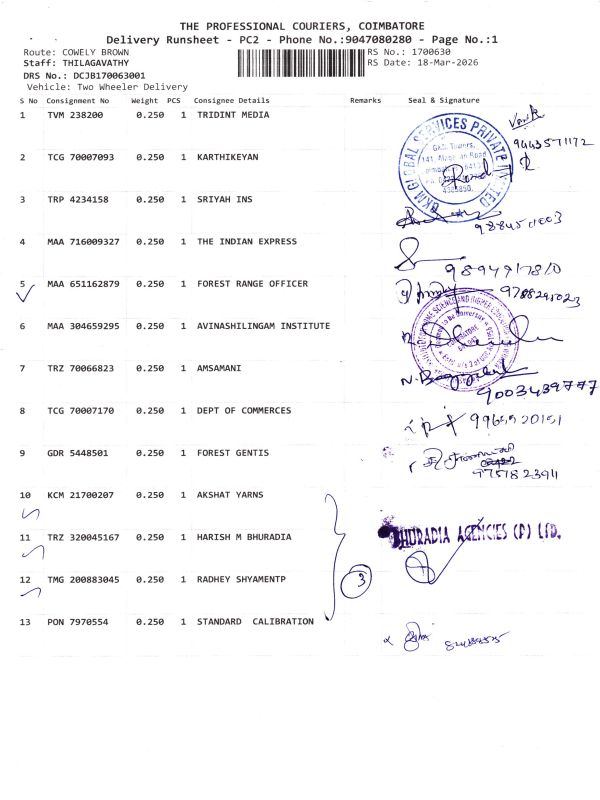 THE PROFESSIONAL COURIERS, COIMBATORE
Delivery Runsheet - PC2 - Phone No.:9047080280 - Page No.:1
Route: COWELY BROWN
RS No.: 1700630
Staff: THILAGAVATHY
RS Date: 18-Mar-2026
DRS No.: DCJB170063001
Vehicle: Two Wheeler Delivery
S No Consignment No Weight PCS Consignee Details Remarks Seal & Signature
1 TVM 238200 0.250 1 TRIDINT MEDIA
BKM GLOBAL SERVICES PRIVATE LIMITED
9443571172
2 TCG 70007093 0.250 1 KARTHIKEYAN
3 TRP 4234158 0.250 1 SRIYAH INS
4 MAA 716009327 0.250 1 THE INDIAN EXPRESS
9894917810
5 MAA 651162879 0.250 1 FOREST RANGE OFFICER
9788295023
6 MAA 304659295 0.250 1 AVINASHILINGAM INSTITUTE
7 TRZ 70066823 0.250 1 AMSAMANI
9003439777
8 TCG 70007170 0.250 1 DEPT OF COMMERCES
9965520151
9 GDR 5448501 0.250 1 FOREST GENTIS
9751822394
10 KCM 21700207 0.250 1 AKSHAT YARNS
11 TRZ 320045167 0.250 1 HARISH M BHURADIA
BHURADIA AGENCIES (P) LTD.
12 TMG 200883045 0.250 1 RADHEY SHYAMENTP
3
13 PON 7970554 0.250 1 STANDARD CALIBRATION